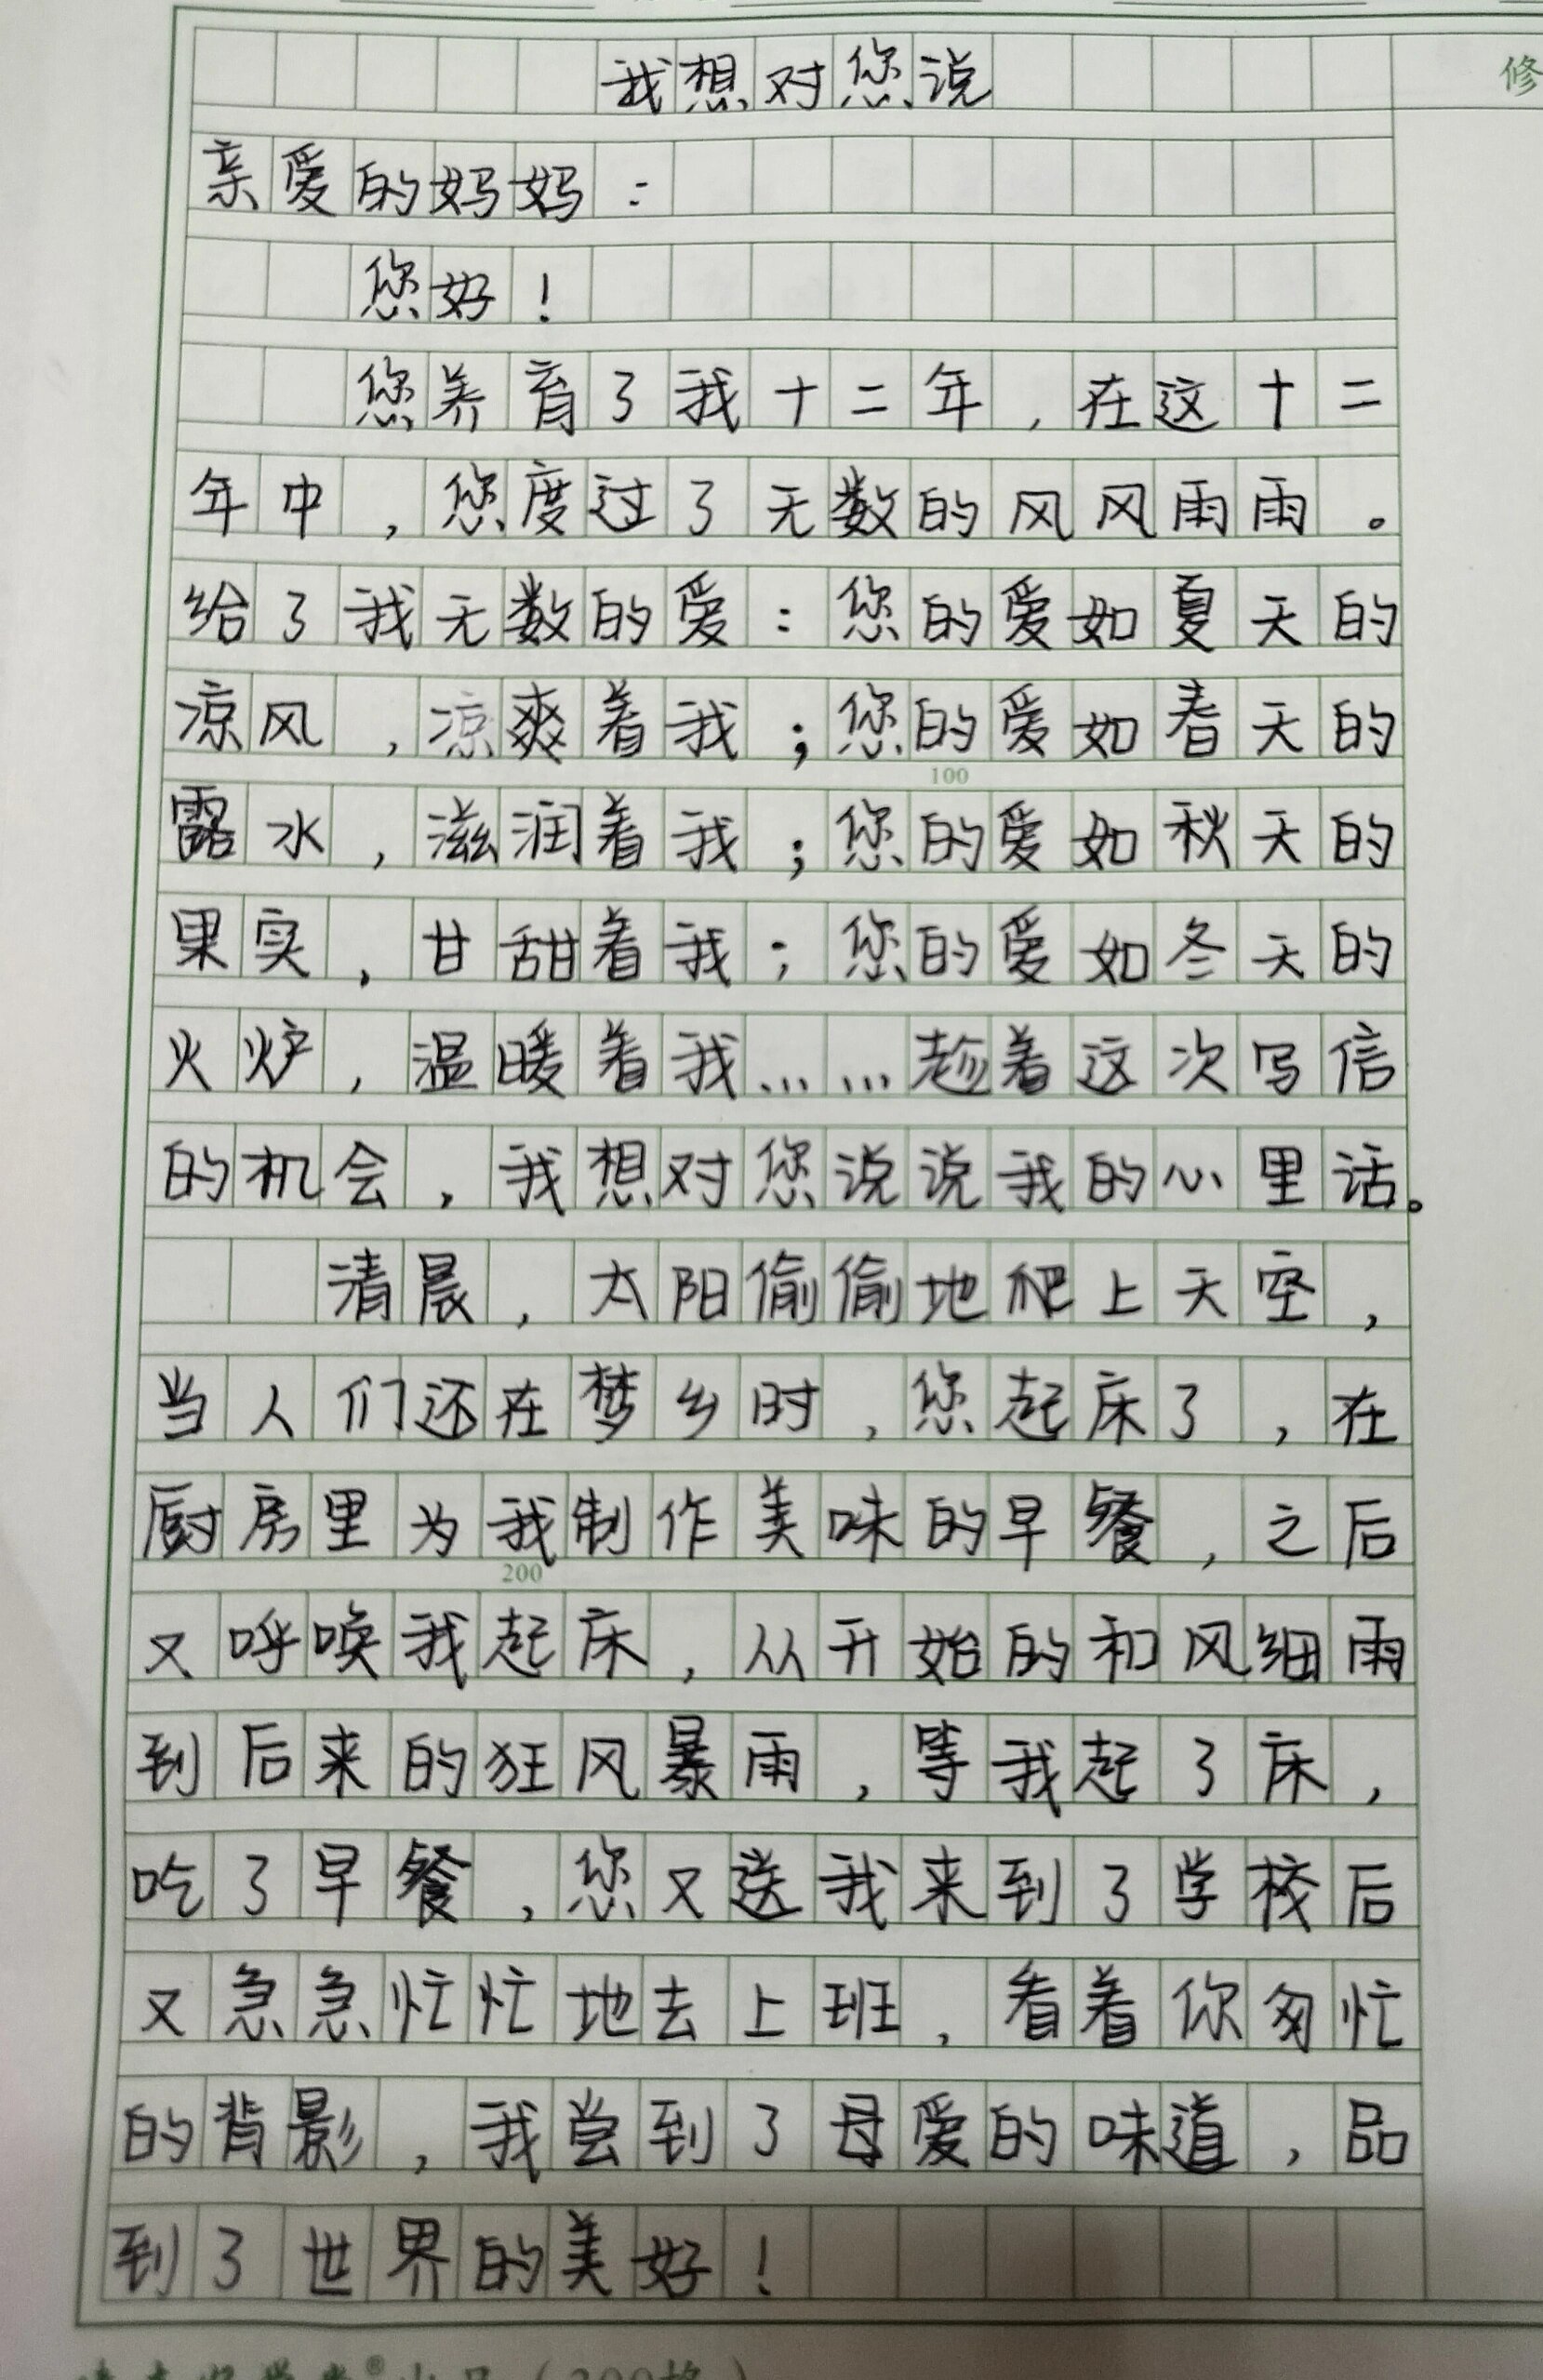 修
我想对您说
亲爱的妈妈：
您好！
您养育了我十二年，在这十二
年中，您度过了无数的风风雨雨。
给了我无数的爱：您的爱如夏天的
凉风，凉爽着我；您的爱如春天的
100
露水，滋润着我；您的爱如秋天的
果实，甘甜着我；您的爱如冬天的
火炉，温暖着我……趁着这次写信
的机会，我想对您说说我的心里话。
清晨，太阳偷偷地爬上天空，
当人们还在梦乡时，您起床了，在
厨房里为我制作美味的早餐，之后
200
又呼唤我起床，从开始的和风细雨
到后来的狂风暴雨，等我起了床，
吃了早餐，您又送我来到了学校后
又急急忙忙地去上班，看着你匆忙
的背影，我尝到了母爱的味道，品
到了世界的美好！